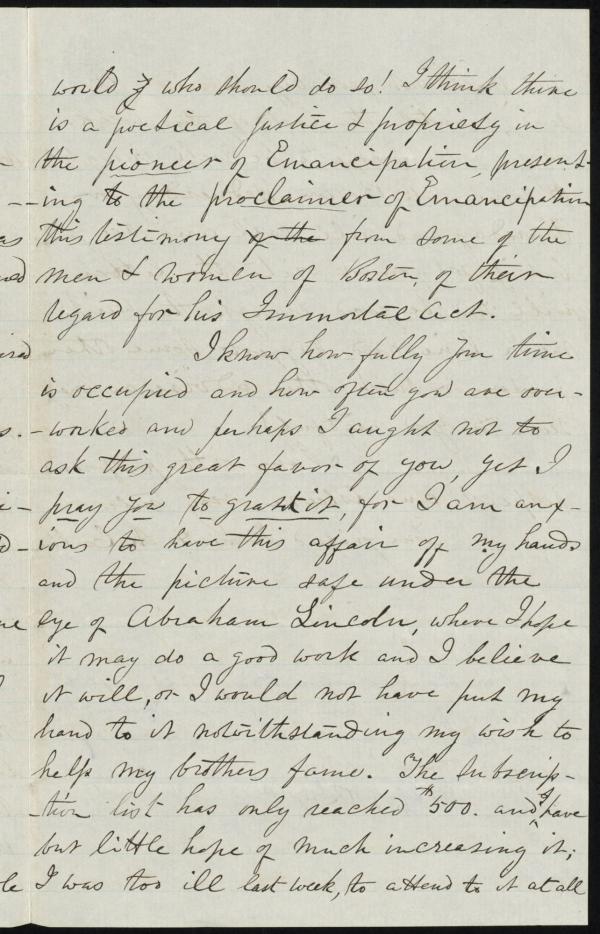 world who should do so! I think there
is a poetical justice & propriety in
the pioneer of Emancipation, present-
-ing to the proclaimer of Emancipation
this testimony of the from some of the
men & women of Boston, of their
regard for his Immortal act.
I know how fully your time
is occupied and how often you are over-
-worked and perhaps I aught not to
ask this great favor of you, yet I
pray you to grant it, for I am anx-
-ious to have this affair off my hands
and the picture safe under the
eye of Abraham Lincoln, where I hope
it may do a good work and I believe
it will, or I would not have put my
hand to it notwithstanding my wish to
help my brothers fame. The Subscrip-
-tion list has only reached $500. and I have
but little hope of much increasing it;
I was too ill last week, to attend to it at all